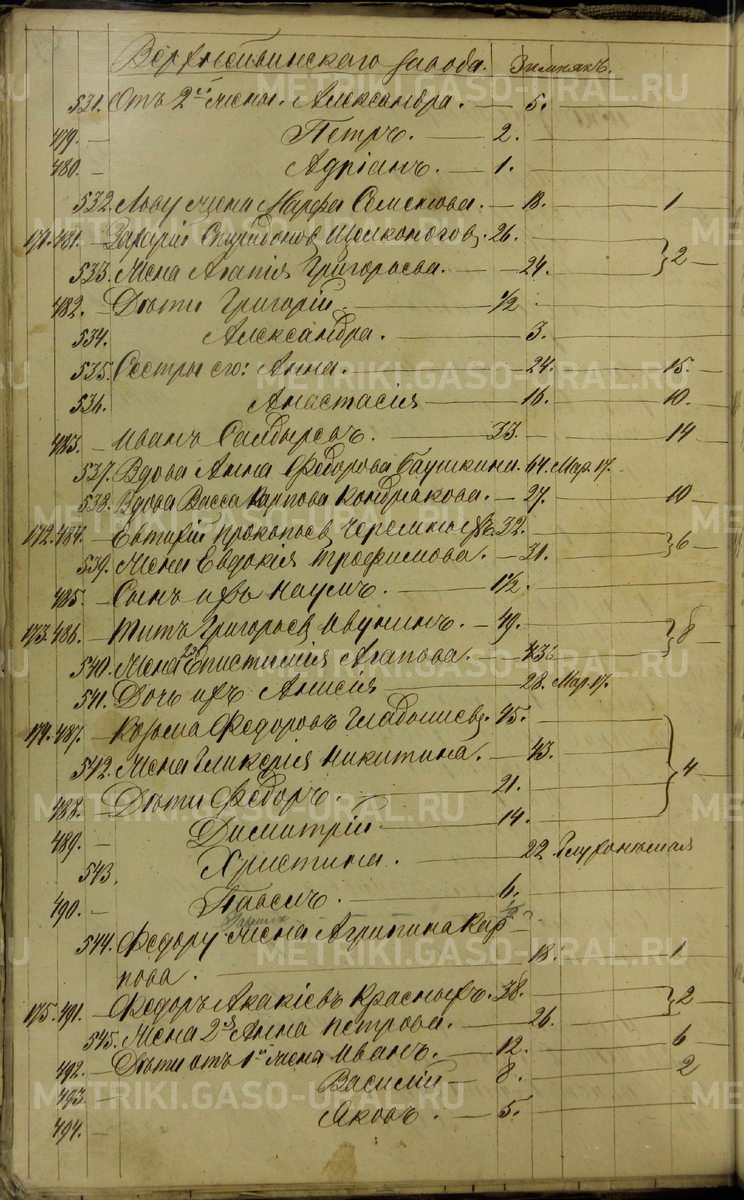 Верхнетвинскаго завода. Зимнякъ.
531. Отъ 2й жены. Александра. — 5.
479. — Петръ. — 2.
480. — Адріанъ. — 1.
532. Льву жена Марфа Семенова. — 18. — 1
171. 481. — Захарій Спиридоновъ Щелконоговъ. 26.
533. Жена Агапія Григорьева. — 24. } 2 —
482. — Дѣти Григорій — 1/2
534. Александра. — 3.
535. Сестры его: Анна. — 24. — 15.
536. Анастасія — 16. — 10.
483. — Иванъ — 33. — 14
537. Вдова Анна Федорова 44. Мар. 17.
538. Вдова Васса Карпова Кондракова. — 27. — 10
172. 484. — Евтихій Прокопьев 32.
539. Жена Евдокія Трофимова. — 31. } 6 —
485. — Сынъ ихъ Наумъ. — 1 1/2.
173. 486. — Титъ Григорьев Ивунинъ. — 49.
540. Жена 2я Епистимія Агапова. — 36 } 8 —
541. Дочь ихъ Анисія — 28. Мар. 17.
174. 487. — Козьма Федоровъ 45.
542. Жена Гликерія Никитина. — 43.
488. — Дѣти Федоръ. — 21. } 4
489. — Димитрій — 14.
543. Христина. — 22. Глухонѣмая
490. — Павелъ. — 6.
544. Федору жена Агрипина Кар
пова. — 18. — 1
175. 491. — Федоръ Акакіевъ Красныхъ. 38. } 2 —
545. Жена 2я Анна Петрова. — 26.
492. — Дѣти отъ 1й жены Иванъ. — 12. — 6
493. — Василій — 8. — 2
494. — Яковъ. — 5.
METRIKI.GASO-URAL.RU